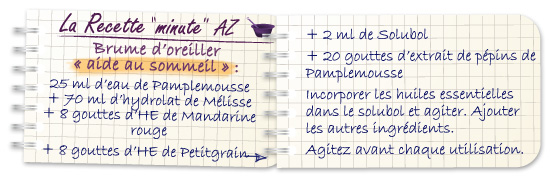 La Recette "minute" AZ
Brume d'oreiller
« aide au sommeil » :
25 ml d'eau de Pamplemousse
+ 70 ml d'hydrolat de Mélisse
+ 8 gouttes d'HE de Mandarine
rouge
+ 8 gouttes d'HE de Petitgrain
+ 2 ml de Solubol
+ 20 gouttes d'extrait de pépins de
Pamplemousse
Incorporer les huiles essentielles
dans le solubol et agiter. Ajouter
les autres ingrédients.
Agitez avant chaque utilisation.